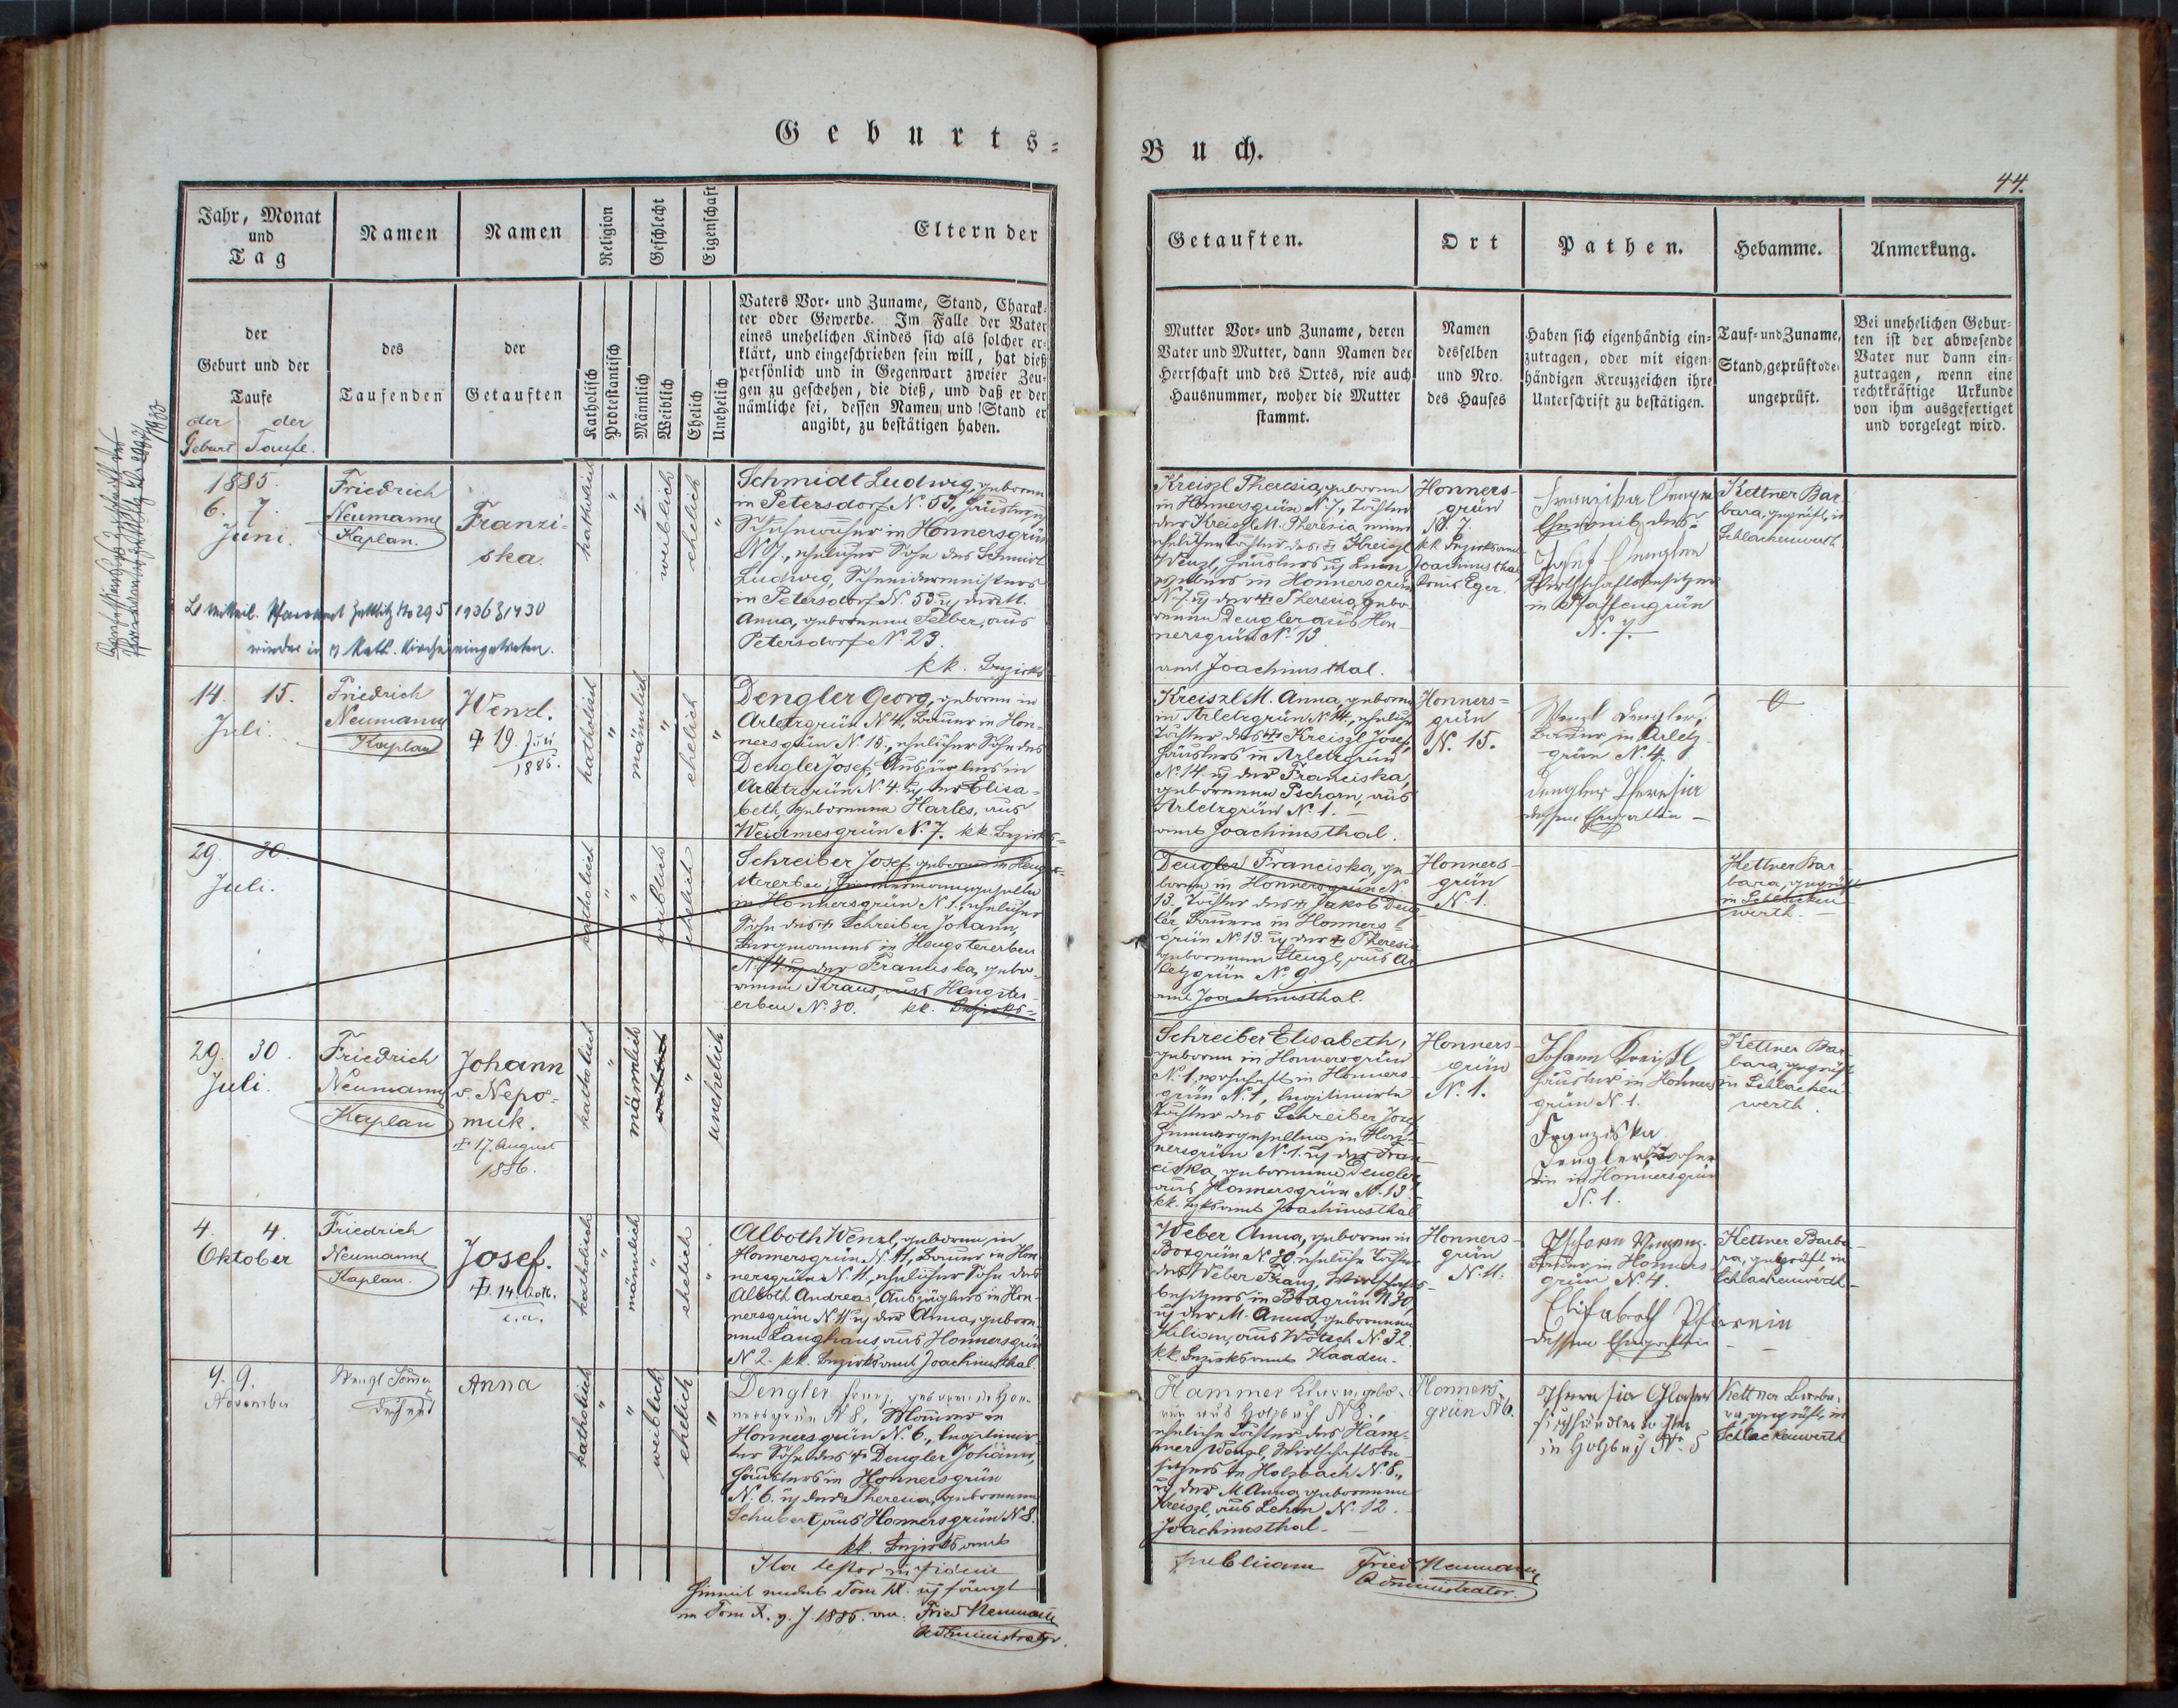 Geburts=
Buch.
44.
Jahr, Monat
und
Tag
Namen
Namen
Religion
Geschlecht
Eigenschaft
Eltern der
der
Geburt und der
Taufe
der der
Geburt Taufe.
des
Taufenden
der
Getauften
Katholisch
Protestantisch
Männlich
Weiblich
Ehelich
Unehelich
Vaters Vor- und Zuname, Stand, Charak-
ter oder Gewerbe. Im Falle der Vater
eines unehelichen Kindes sich als solcher er-
klärt, und eingeschrieben sein will, hat dieß
persönlich und in Gegenwart zweier Zeu-
gen zu geschehen, die dieß, und daß er der
nämliche sei, dessen Namen und Stand er
angibt, zu bestätigen haben.
Getauften.
Ort
Pathen.
Hebamme.
Anmerkung.
Mutter Vor- und Zuname, deren
Vater und Mutter, dann Namen der
Herrschaft und des Ortes, wie auch
Hausnummer, woher die Mutter
stammt.
Namen
desselben
und Nro.
des Hauses
Haben sich eigenhändig ein-
zutragen, oder mit eigen-
händigen Kreuzzeichen ihre
Unterschrift zu bestätigen.
Tauf- und Zuname,
Stand, geprüft oder
ungeprüft.
Bei unehelichen Gebur-
ten ist der abwesende
Vater nur dann ein-
zutragen, wenn eine
rechtkräftige Urkunde
von ihm ausgefertiget
und vorgelegt wird.
1885.
6. 7.
Juni.
Friedrich
Neumann
Kaplan.
Franzi-
ska.
katholisch
"
"
weiblich
ehelich
"
Schmidt Ludwig, geboren
in Petersdorf N. 53, Häusler u.
in Honnersgrün
N. 7., ehelicher Sohn des Schmidt
Ludwig, Schneidermeisters
in Petersdorf N. 53. u. der M.
Anna, gebornenen Felber, aus
Petersdorf N. 23.
kk. Bezirks-
No 295 1936 1430
wieder in Kath. Kirche eingetreten.
Kreiszl Theresia, geboren
in Honnersgrün N. 7., Tochter
der Kreiszl M. Theresia einer
ehelichen Tochter des Kreiszl
Wenzl, Häuslers u.
in Honnersgrün
N. 7. u. der Theresia, gebo-
renen Dengler aus Hon-
nersgrün N. 13.
amt Joachimsthal.
Honners-
grün
N. 7.
kk Bezirksamt
Joachimsthal,
Kreis Eger.
Josef Dengler
Wirthschaftsbesitzer
in Pfaffengrün
N. 7.
Kettner Bar-
bara, geprüft, in
Schlackenwerth
14. 15.
Juli.
Friedrich
Neumann
Kaplan
Wenzl.
19. Juli
1885.
katholisch
"
männlich
"
ehelich
"
Dengler Georg, geboren in
Arletzgrün N. 4., Bauer in Hon-
nersgrün N. 15., ehelicher Sohn des
Dengler Josef, Auszüglers in
Arletzgrün N. 4. u. der Elisa-
beth, gebornenen Harles, aus
Weidmesgrün N. 7. kk. Bezirks-
Kreiszl M. Anna, geboren
in Arletzgrün N. 14., eheliche
Tochter des Kreiszl Josef,
Häuslers in Arletzgrün
N. 14. u. der Franciska,
gebornenen Pschorn, aus
Arletzgrün N. 1. –
amt Joachimsthal.
Honners=
grün
N. 15.
Wenzl Dengler,
Bauer in Arletz-
grün N. 4.
Dengler Theresia
dessen Ehegattin –
29. 30.
Juli.
katholisch
"
"
weiblich
ehelich
"
Schreiber Josef, geboren in Heng-
stererben, Zimmermanngeselle
in Honnersgrün N. 1., ehelicher
Sohn des Schreiber Johann,
Bergmannes in Hengstererben
N. 14. u. der Franciska, gebo-
renen Kraus, aus Hengster-
erben N. 30. kk. Bezirks=
Dengler Franciska, ge-
boren in Honnersgrün N.
13., Tochter des Jakob Deng-
ler, Bauers in Honners-
grün N. 13. u. der Theresia
gebornenen Stengl, aus Ar-
letzgrün N. 9.
amt Joachimsthal.
Honners-
grün
N. 1.
Kettner Bar-
bara, geprüft
in Schlacken-
werth. –
29. 30.
Juli.
Friedrich
Neumann
Kaplan
Johann
v. Nepo=
muk.
17. August
1886.
katholisch
"
männlich
"
unehelich
Schreiber Elisabeth,
geboren in Honnersgrün
N. 1, wohnhaft in Honners-
grün N. 1, legitimirte
Tochter des Schreiber Josef
Zimmergesellens in Hon-
nersgrün N. 1. u. der Fran-
ciska, gebornenen Dengler,
aus Honnersgrün N. 13.
kk. Bzksamt Joachimsthal
Honners-
grün
N. 1.
Johann Kreißl
Häusler in Honners-
grün N. 1.
Franziska
Dengler,
in Honnersgrün
N. 1.
Kettner Bar-
bara, geprüft
in Schlacken-
werth.
4. 4.
Oktober
Friedrich
Neumann
Kaplan.
Josef.
14. Oktb.
e. a.
katholisch
"
männlich
"
ehelich
"
Alboth Wenzl, geboren in
Honnersgrün N. 11, Bauer in Hon-
nersgrün N. 11, ehelicher Sohn des
Alboth Andreas, Auszüglers in Hon-
nersgrün N. 11. u. der Anna, gebore-
nen Langhans, aus Honnersgrün
N. 2. kk. Bezirksamt Joachimsthal.
Weber Anna, geboren in
Boxgrün N. 30, eheliche Tochter
des Weber Franz, Wirtschafts-
besitzers in Boxgrün N. 30,
u. der M. Anna, gebornenen
Kilian, aus Wotsch N. 32.
kk. Bezirksamt Kaaden.
Honners-
grün
N. 11.
Pschorn
Bauer in Honners-
grün N. 4.
Elisabeth
dessen Ehegattin –
Kettner Barba-
ra, geprüft, in
Schlackenwerth –
9. 9.
November
Wenzl
Dechant
Anna
katholisch
"
"
weiblich
ehelich
"
Dengler Franz, geboren in Hon-
nersgrün N 8, in
Honnersgrün N. 6., legitimir-
ter Sohn des Dengler Johann,
Häuslers in Honnersgrün
N. 6. u. der Theresia, gebornenen
Schubert, aus Honnersgrün N 8.
kk. Bezirksamt
Hammer gebo-
ren aus Holzbach N 8,
eheliche Tochter des Ham-
mer Wenzl, Wirtschaftsbe-
sitzers in Holzbach N. 8.,
u. der M. Anna, gebornenen
Kreiszl, aus Lehen N. 12.
Joachimsthal. –
Honners-
grün N 6.
Theresia
in Holzbach N. 8
Kettner Barba-
ra, geprüft, in
Schlackenwerth
Ita testor in fidem
publicam Fried Neumann
Administrator.
Hiemit endet Tom IX. u. fängt
in Tom X. v. J. 1885. an. Fried Neumann
Administrator.